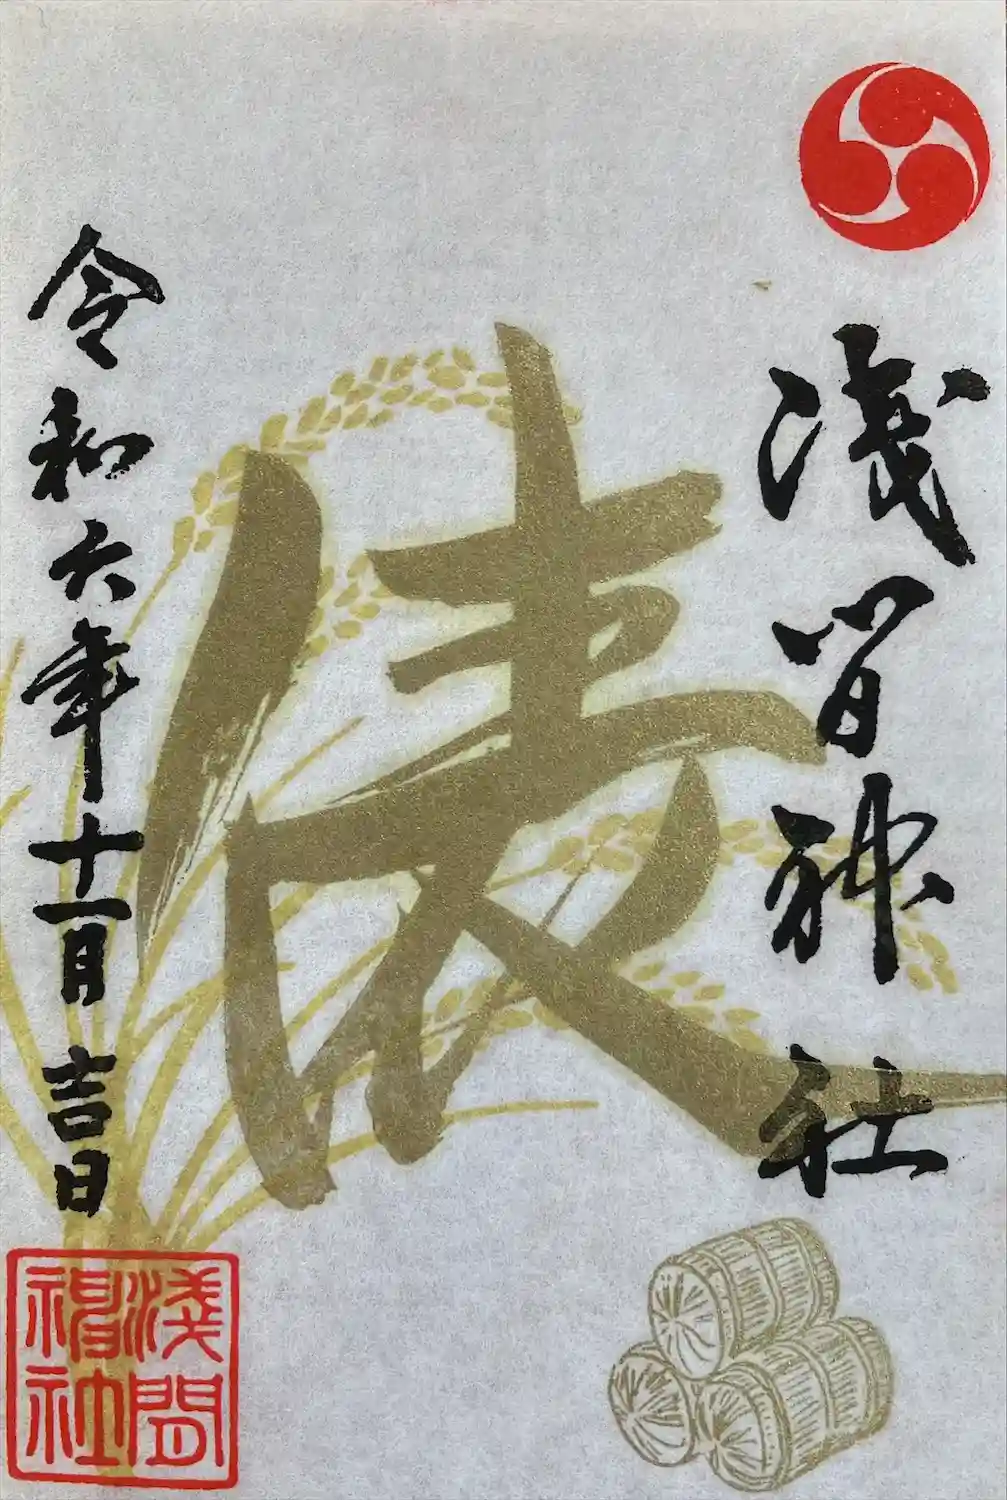 浅間神社
俵
令和六年十一月吉日
淺間
神社